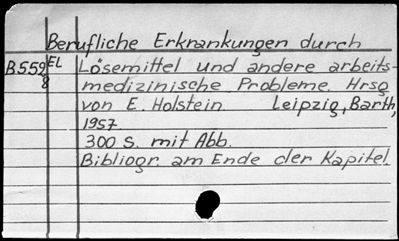 Berufliche Erkrankungen durch
B559 EL Lösemittel und andere arbeits-
8 medizinische Probleme. Hrsg
von E. Holstein. Leipzig, Barth,
1957.
300 S. mit Abb.
Bibliogr. am Ende der Kapitel.